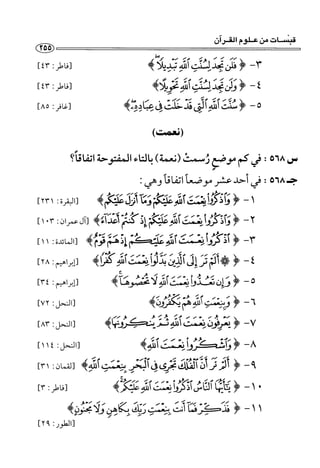 قبسات من علوم القرآن
٢٥٥
٣- ﴿ فَلَن تَجِدَ لِسُنَّتِ ٱللَّهِ تَبْدِيلًا ﴾ [فاطر: ٤٣]
٤- ﴿ وَلَن تَجِدَ لِسُنَّتِ ٱللَّهِ تَحْوِيلًا ﴾ [فاطر: ٤٣]
٥- ﴿ سُنَّتَ ٱللَّهِ ٱلَّتِي قَدْ خَلَتْ فِي عِبَادِهِۦ ﴾ [غافر: ٨٥]
(نعمت)
س ٥٦٨ : في كم موضعٍ رُسمتْ (نعمة) بالتاء المفتوحة اتفاقاً؟
جـ ٥٦٨ : في أحد عشر موضعاً اتفاقاً وهي :
١- ﴿ وَٱذْكُرُوا۟ نِعْمَتَ ٱللَّهِ عَلَيْكُمْ وَمَآ أَنزَلَ عَلَيْكُم ﴾ [البقرة: ٢٣١]
٢- ﴿ وَٱذْكُرُوا۟ نِعْمَتَ ٱللَّهِ عَلَيْكُمْ إِذْ كُنتُمْ أَعْدَآءً ﴾ [آل عمران: ١٠٣]
٣- ﴿ ٱذْكُرُوا۟ نِعْمَتَ ٱللَّهِ عَلَيْكُمْ إِذْ هَمَّ قَوْمٌ ﴾ [المائدة: ١١]
٤- ﴿ ۞ أَلَمْ تَرَ إِلَى ٱلَّذِينَ بَدَّلُوا۟ نِعْمَتَ ٱللَّهِ كُفْرًا ﴾ [إبراهيم: ٢٨]
٥- ﴿ وَإِن تَعُدُّوا۟ نِعْمَتَ ٱللَّهِ لَا تُحْصُوهَآ ﴾ [إبراهيم: ٣٤]
٦- ﴿ وَبِنِعْمَتِ ٱللَّهِ هُمْ يَكْفُرُونَ ﴾ [النحل: ٧٢]
٧- ﴿ يَعْرِفُونَ نِعْمَتَ ٱللَّهِ ثُمَّ يُنكِرُونَهَا ﴾ [النحل: ٨٣]
٨- ﴿ وَٱشْكُرُوا۟ نِعْمَتَ ٱللَّهِ ﴾ [النحل: ١١٤]
٩- ﴿ أَلَمْ تَرَ أَنَّ ٱلْفُلْكَ تَجْرِي فِي ٱلْبَحْرِ بِنِعْمَتِ ٱللَّهِ ﴾ [لقمان: ٣١]
١٠- ﴿ يَٰٓأَيُّهَا ٱلنَّاسُ ٱذْكُرُوا۟ نِعْمَتَ ٱللَّهِ عَلَيْكُمْ ﴾ [فاطر: ٣]
١١- ﴿ فَذَكِّرْ فَمَآ أَنتَ بِنِعْمَتِ رَبِّكَ بِكَاهِنٍ وَلَا مَجْنُونٍ ﴾
[الطور: ٢٩]